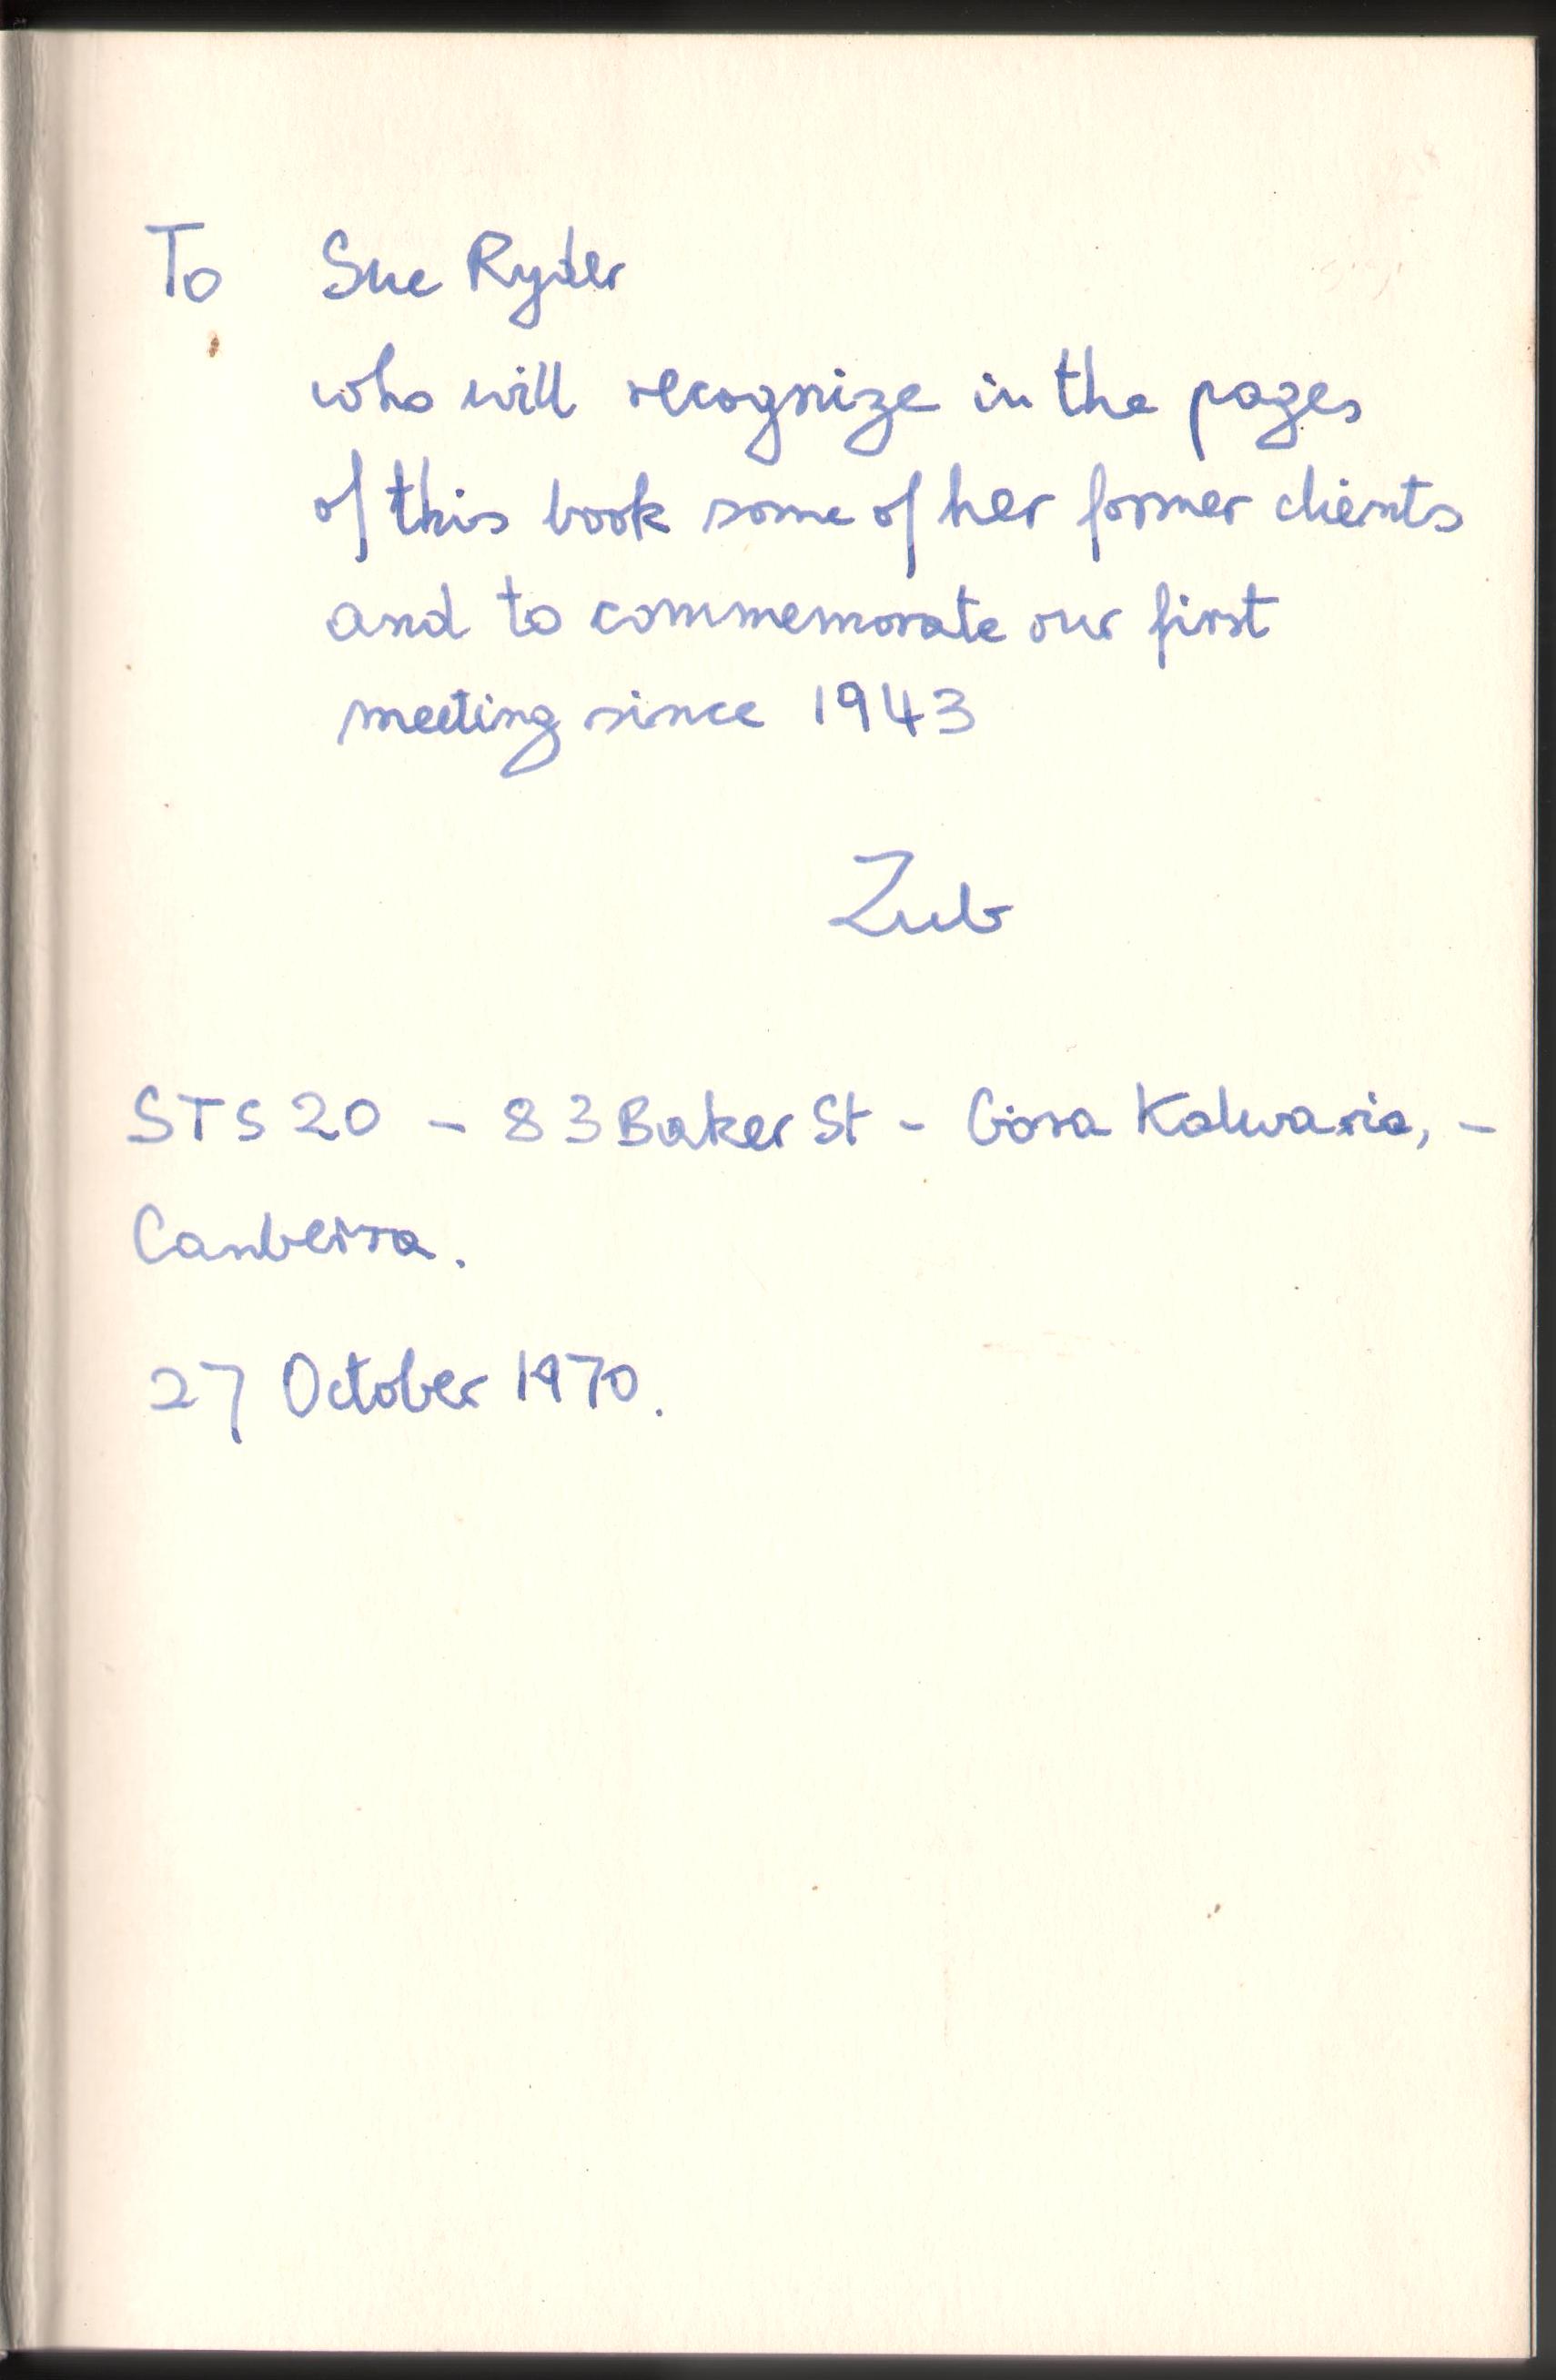 To Sue Ryder
who will recognize in the pages
of this book some of her former clients
and to commemorate our first
meeting since 1943
Zub
STS 20 - 83 Baker St - Góra Kalwaria, -
Canberra.
27 October 1970.